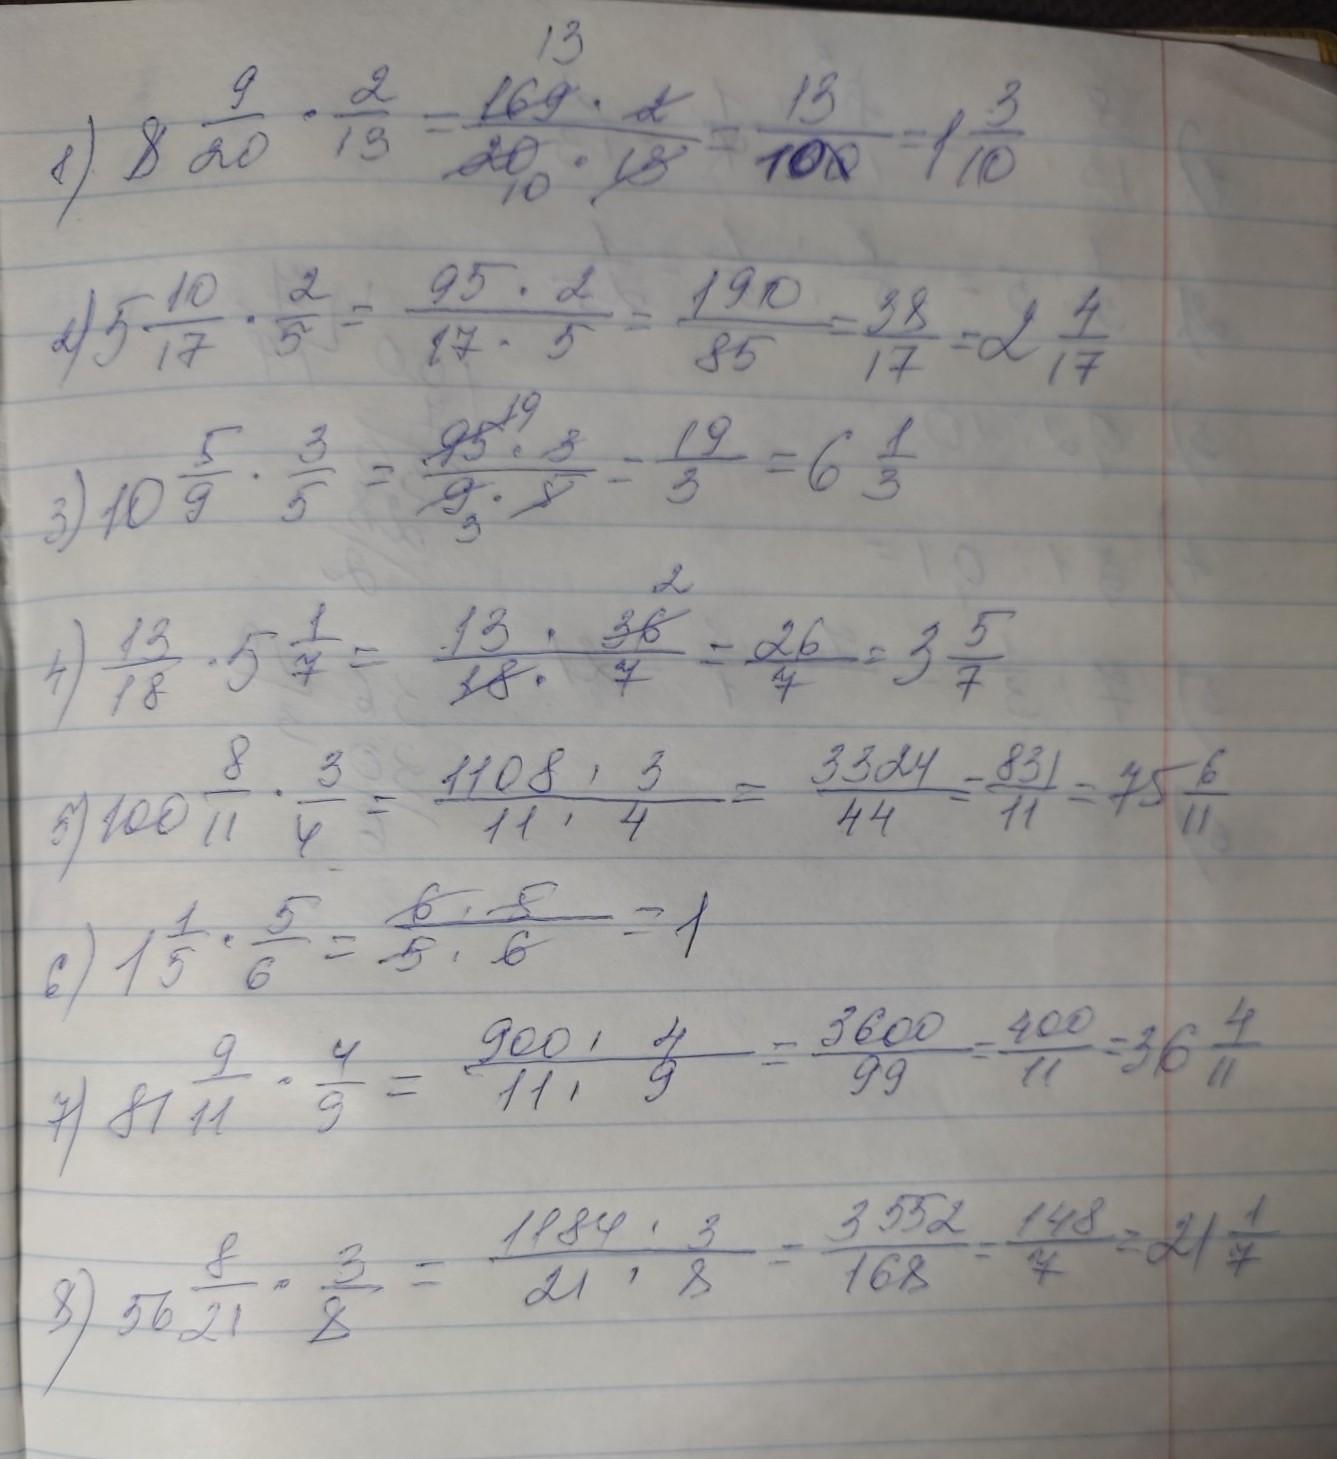 13
1) 8 9/20 · 2/13 = 169 · 2 / 20 · 13 = 13/100 = 1 3/10
10
2) 5 10/17 · 2/5 = 95 · 2 / 17 · 5 = 190/85 = 38/17 = 2 4/17
19
3) 10 5/9 · 3/5 = 95 · 3 / 9 · 5 = 19/3 = 6 1/3
3
2
4) 13/18 · 5 1/7 = 13 · 36 / 18 · 7 = 26/7 = 3 5/7
5) 100 8/11 · 3/4 = 1108 · 3 / 11 · 4 = 3324/44 = 831/11 = 75 6/11
6) 1 1/5 · 5/6 = 6 · 5 / 5 · 6 = 1
7) 81 9/11 · 4/9 = 900 · 4 / 11 · 9 = 3600/99 = 400/11 = 36 4/11
8) 56 8/21 · 3/8 = 1184 · 3 / 21 · 8 = 3552/168 = 148/7 = 21 1/7